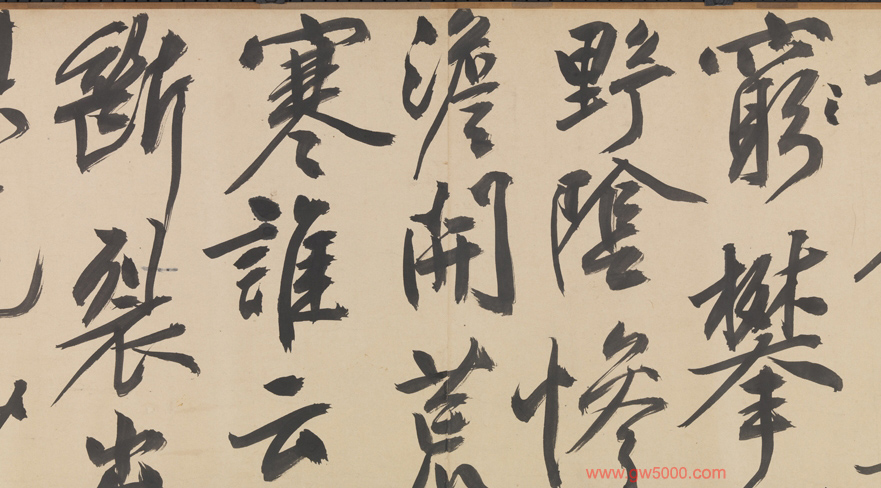 窮攀
野陰惨
澹開荒
寒誰云
斷裂
www.gw5000.com